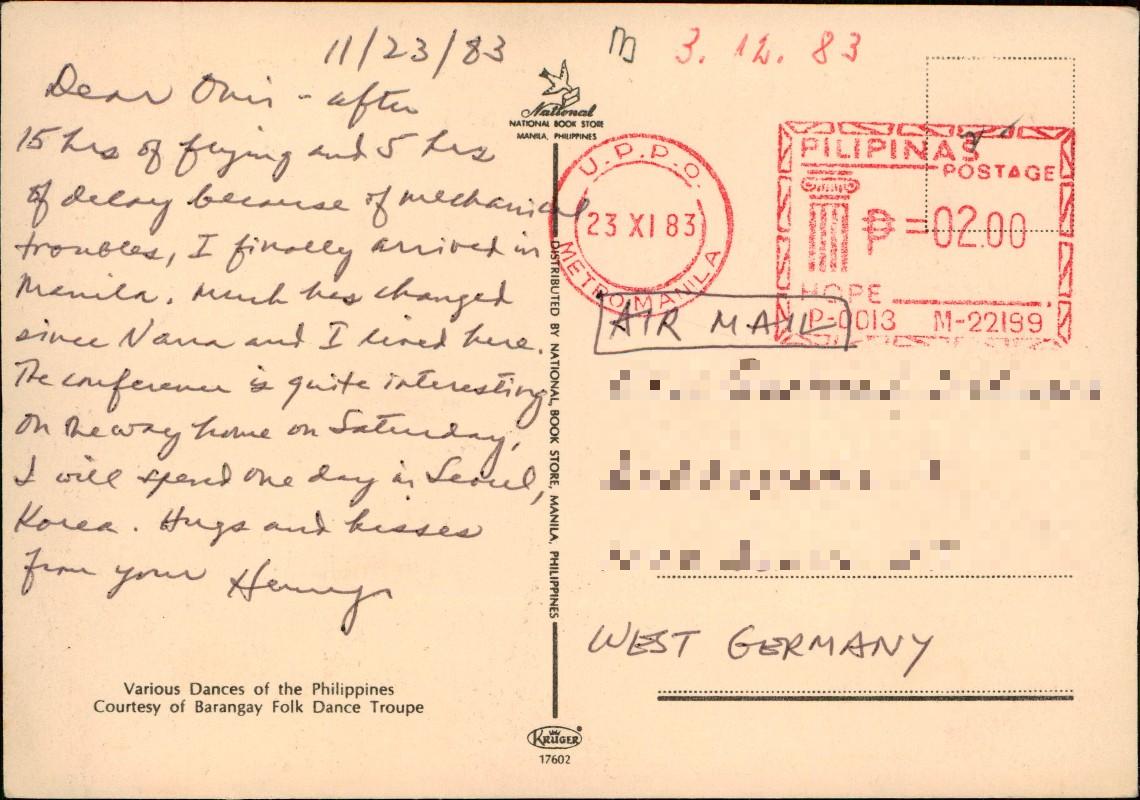 11/23/83
Dear Onis - after
15 hrs of flying and 5 hrs
of delay because of mechanical
troubles, I finally arrived in
Manila. Much has changed
since Nana and I lived here.
The conference is quite interesting
On the way home on Saturday,
I will spend one day in Seoul,
Korea. Hugs and kisses
from your Henry
Various Dances of the Philippines
Courtesy of Barangay Folk Dance Troupe
National
NATIONAL BOOK STORE
MANILA, PHILIPPINES
DISTRIBUTED BY NATIONAL BOOK STORE, MANILA, PHILIPPINES
KRÜGER
17602
3. 12. 83
U.P.P.O.
23 XI 83
METRO MANILA
PILIPINAS
POSTAGE
₱ = 02.00
HOPE
P-0013 M-22199
AIR MAIL
WEST GERMANY